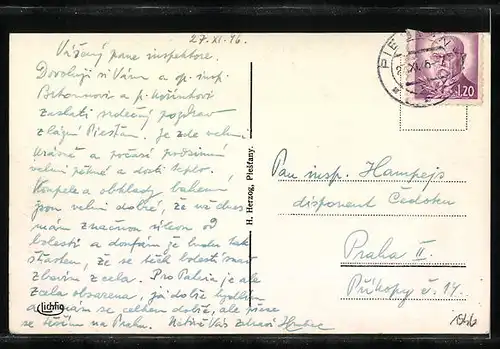 27.XI.46.
Vážený pane inspektore.
Dovoluji si Vám a p. insp.
a p.
zaslati srdečný pozdrav
z lázní Piešťan. Je zde velmi
krásně a počasí podzimní
velmi pěkné a dosti teplo.
Koupele a obklady bahem
jsou velmi dobré, že už dnes
mám značnou úlevu od
bolesti a doufám že budu tak
šťasten, že se těch bolestí snad
zbavím zcela. Pro Palace je ale
zcela obsazena, já dobře bydlím
a mám se celkem dobře, ale přece
se těším na Prahu. Vás zdraví
Lichtig
H. Herzog, Piešťany.
PIEŠŤANY
1.20
Pan insp. Hampejs
disponent Čedoku
Praha II.
Příkopy č. 14.